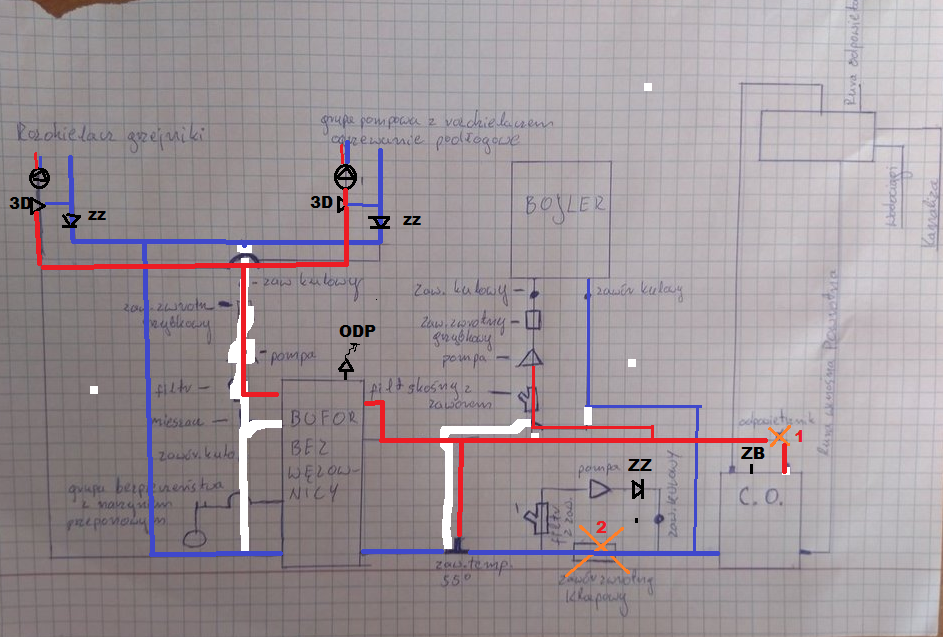 Rura odpowietrz
Rozdzielacz grzejniki
grupa pompowa z rozdzielaczem
ogrzewanie podłogowe
3D
zz
3D
zz
BOJLER
Wodociągi
Kanaliza
zaw kulowy
zaw. kulowy
zawór kulowy
zaw. zwrotn
grzybkowy
zaw. zwrotny
grzybkowy
ODP
pompa
pompa
filtr
filt skośny z
zaworem
BUFOR
BEZ
WĘZOW-
NICY
zawór. kulo
odpowietrznik
1
ZB
C.O.
grupa bezpieczeństwa
z naczyniem
przeponowym
pompa
ZZ
filtr
z zaw.
zaw. kulowy
2
zaw. temp.
55°
zawór zwrotny
klapowy